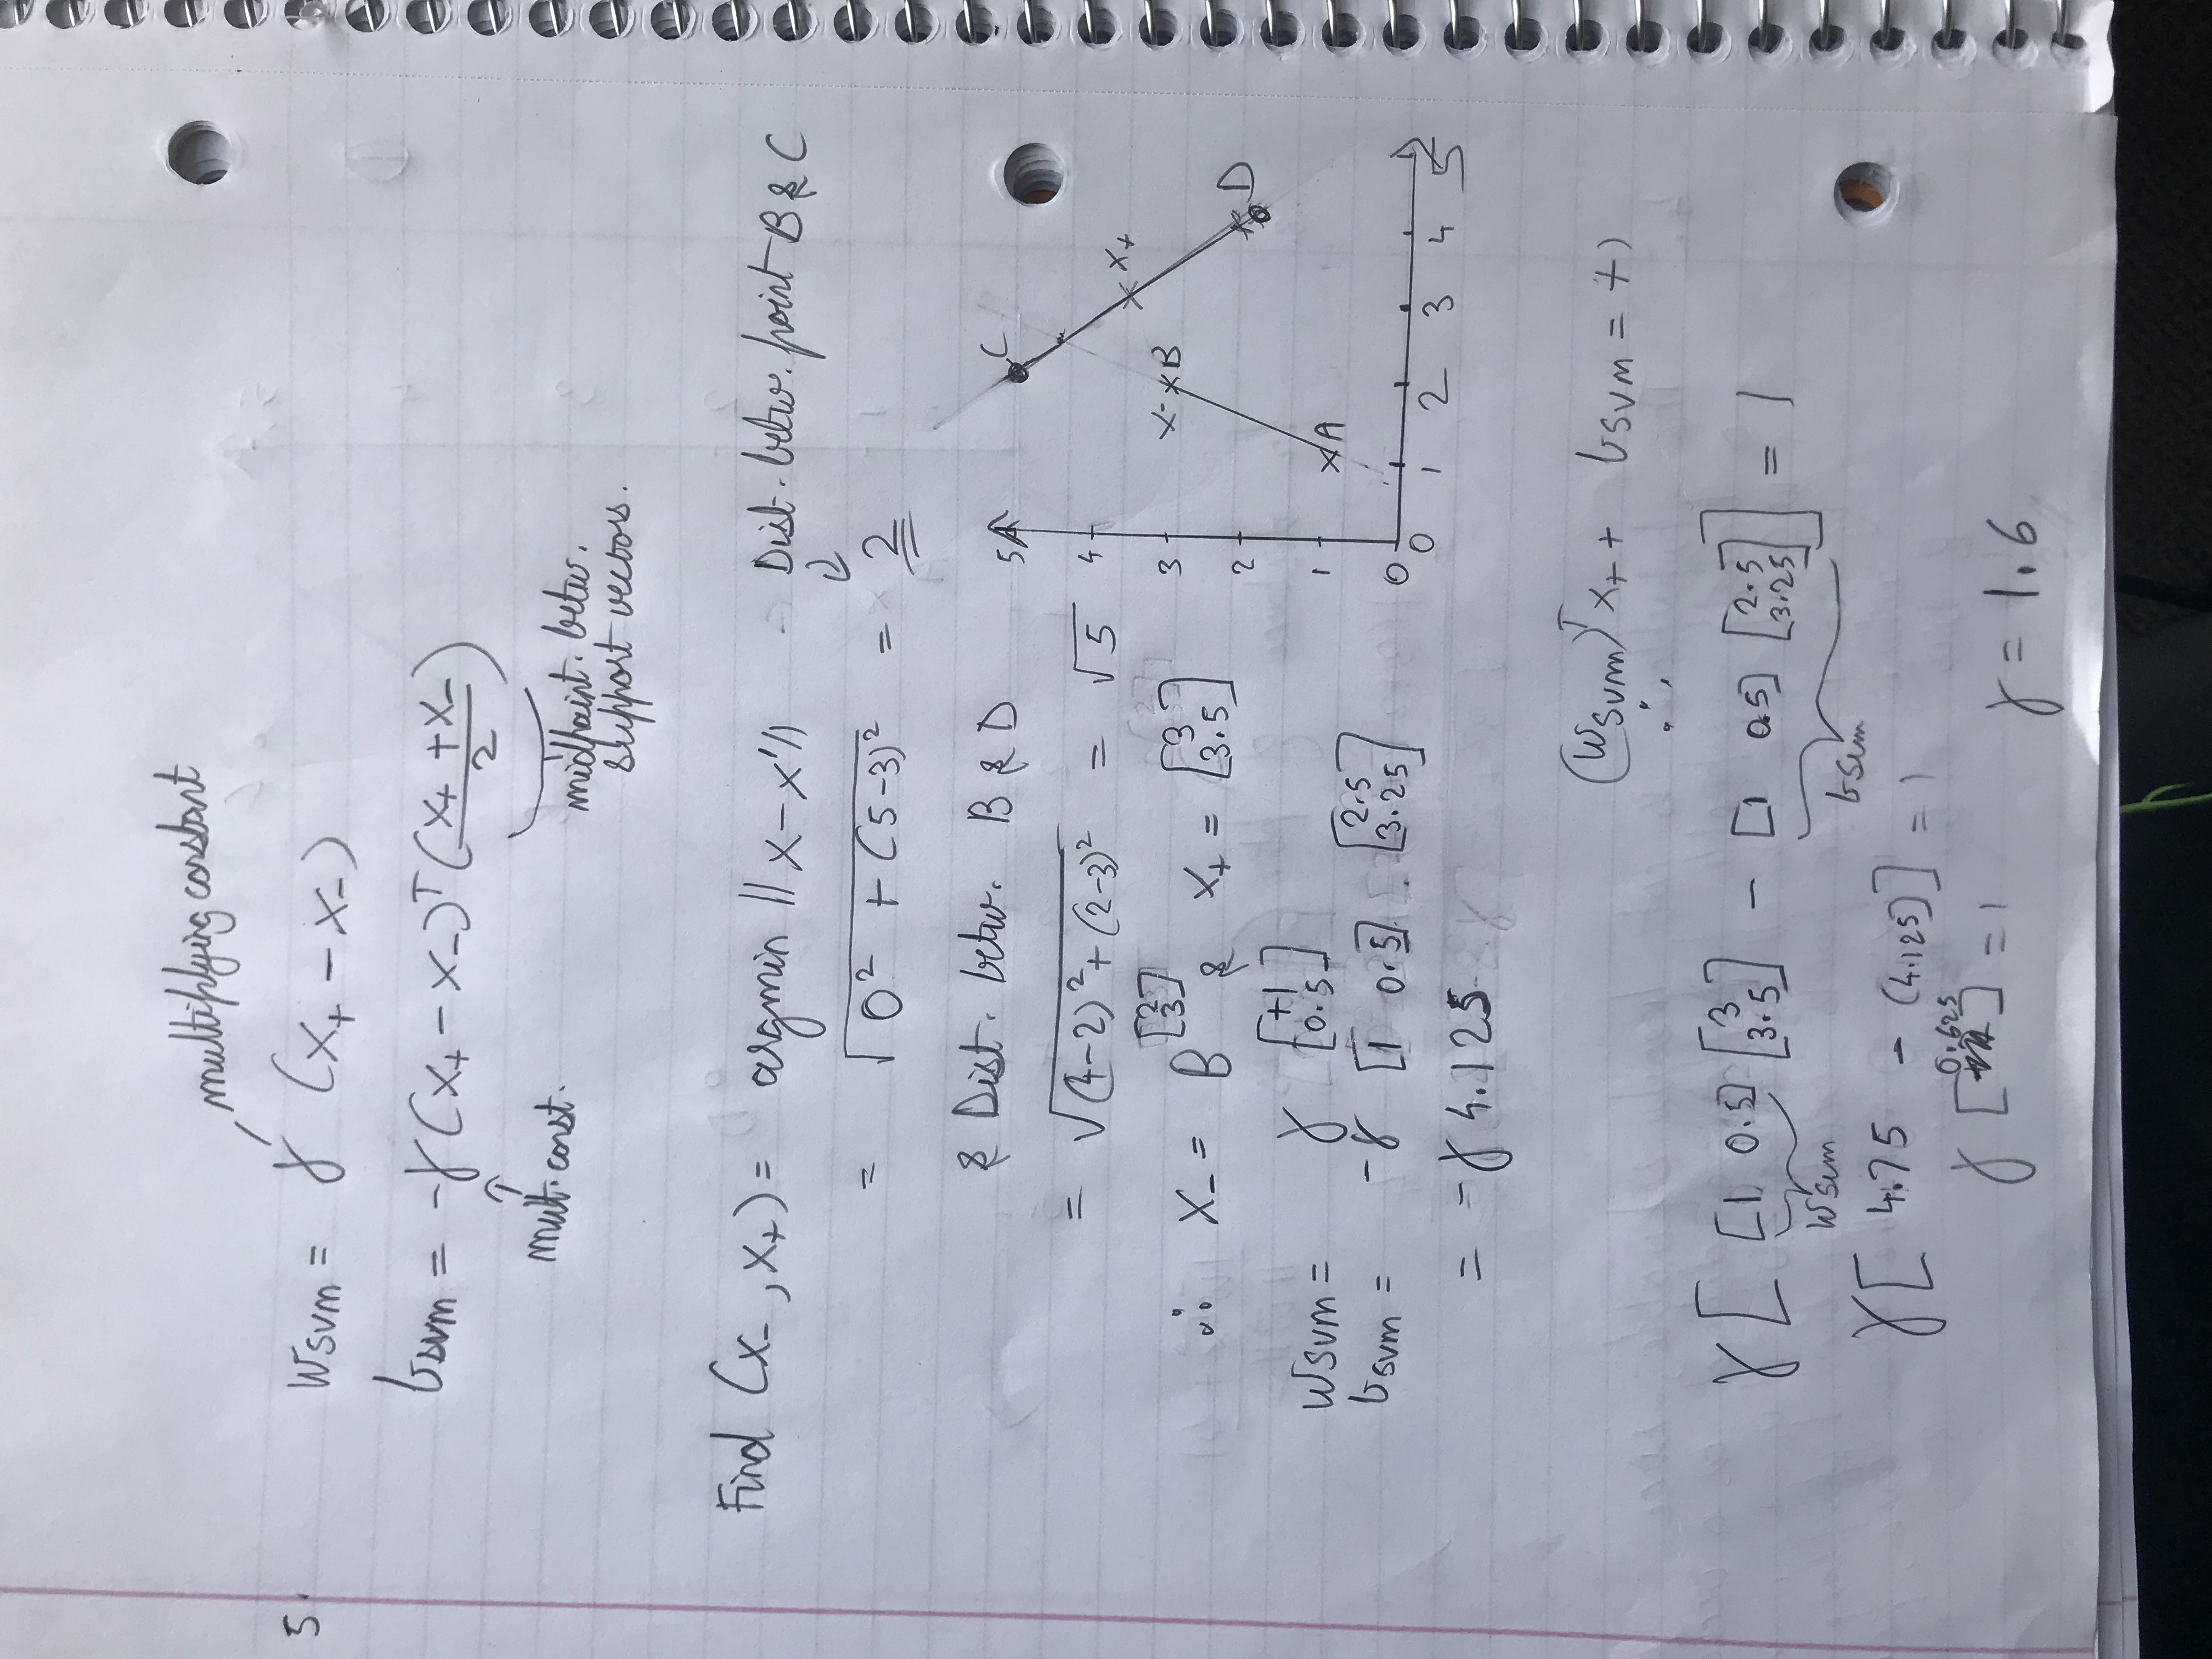 multiplying constant
5.
wsvm = γ (x₊ − x₋)
bsvm = −γ(x₊ − x₋)ᵀ((x₊ + x₋)/2)
mult. const.
midpoint. betw.
support vectors.
Find (x₋, x₊) = argmin ||x−x'||
Dist. betw. point B & C
= √(0² + (5−3)²) = 2
& Dist. betw. B & D
= √((4−2)² + (2−3)²) = √5
∴ x₋ = B [2 3] & x₊ = [3 3.5]
wsvm = γ [+1 0.5]
bsvm = −γ [1 0.5] . [2.5 3.25]
= −γ 4.125
5
C
4
x₊
3
x₋
B
2
D
1
A
0
0 1 2 3 4 5
(wsvm)ᵀx₊ + bsvm = +1
∴
γ[ [1 0.5] [3 3.5] − [1 0.5] [2.5 3.25] ] = 1
wsvm
bsvm
γ[ 4.75 − (4.125)] = 1
γ [0.625] = 1
γ = 1.6